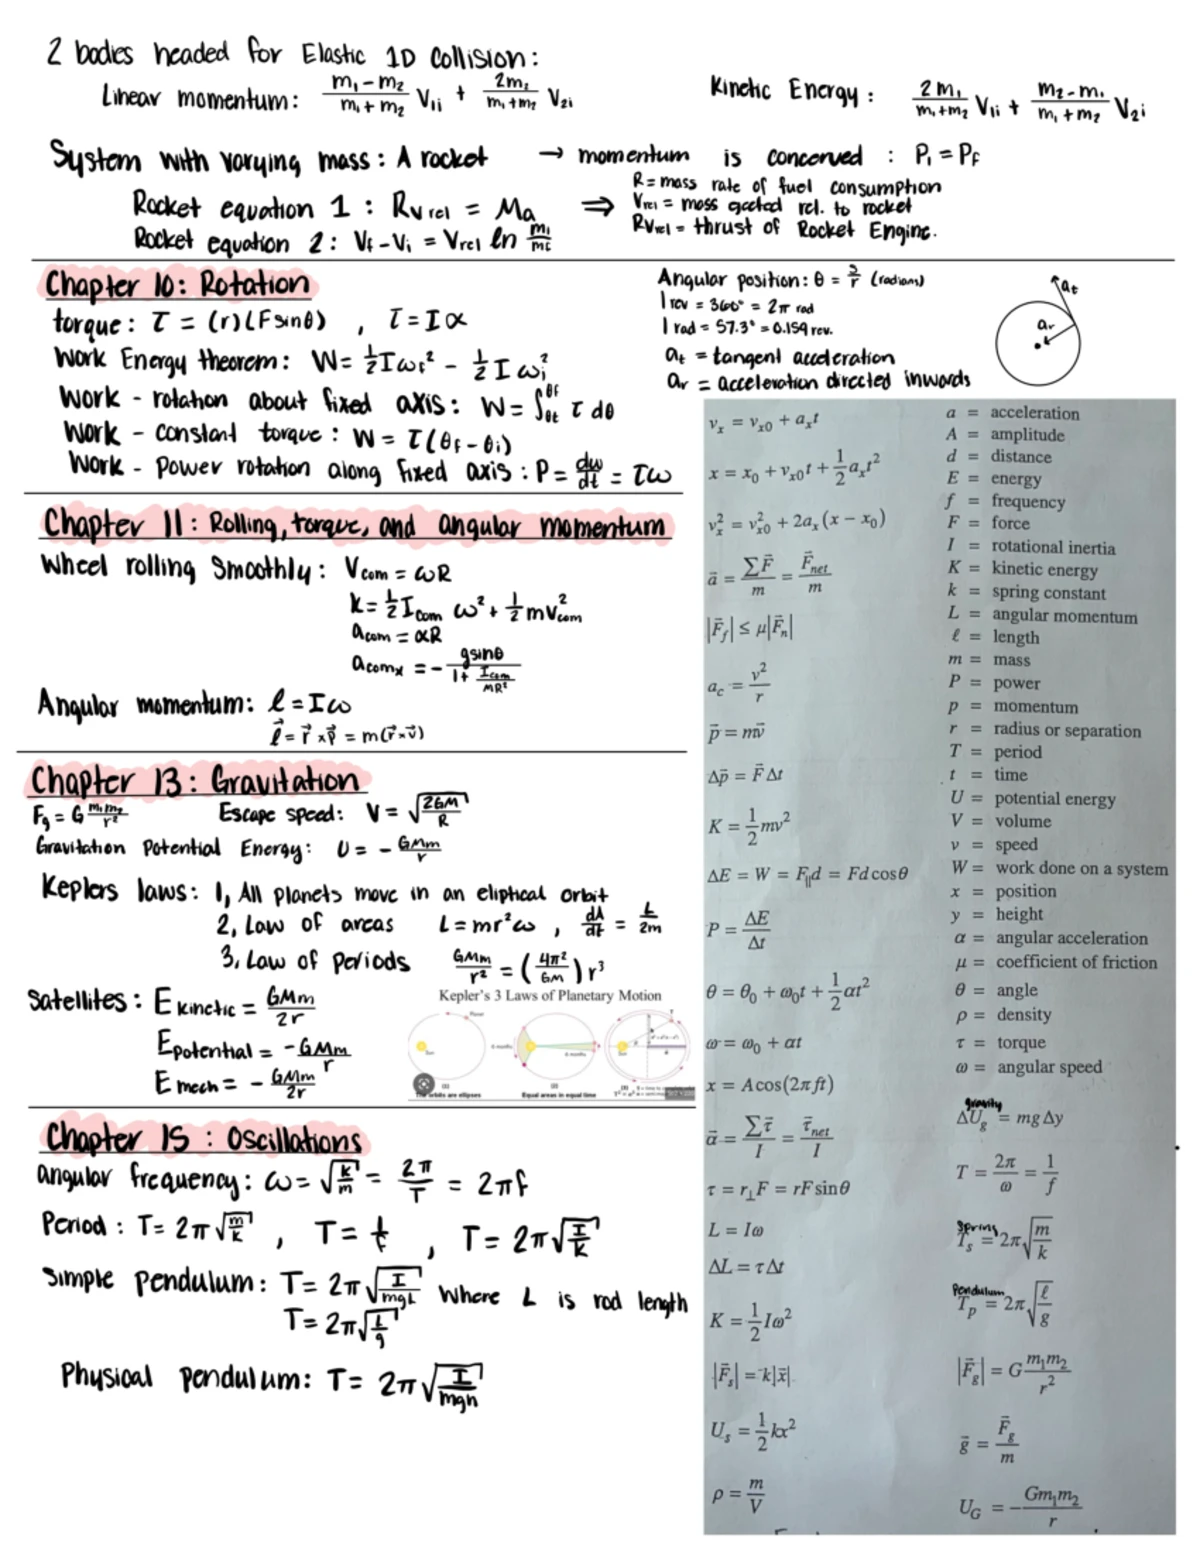 2 bodies headed for Elastic 1D Collision:
Linear momentum: (m₁ - m₂)/(m₁ + m₂) V₁ᵢ + 2m₂/(m₁+m₂) V₂ᵢ
Kinetic Energy: 2m₁/(m₁+m₂) V₁ᵢ + (m₂-m₁)/(m₁+m₂) V₂ᵢ
System with varying mass: A rocket → momentum is concerved : Pᵢ = P_f
Rocket equation 1 : Rv rel = Ma ⇒
Rocket equation 2: V_f - Vᵢ = V rel ln mᵢ/m_f
R = mass rate of fuel consumption
V rel = mass ejected rel. to rocket
RV rel = thrust of Rocket Engine.
Chapter 10: Rotation
torque: τ = (r)(Fsinθ) , τ = Iα
Work Energy theorem: W = ½Iω_f² - ½Iωᵢ²
Work - rotation about fixed axis: W = ∫ τ dθ
Work - constant torque: W = τ(θ_f - θᵢ)
Work - Power rotation along fixed axis : P = dw/dt = τω
Angular position: θ = s/r (radians)
1 rev = 360° = 2π rad
1 rad = 57.3° = 0.159 rev.
a_t = tangent acceleration
a_r = acceleration directed inwards
a_t
a_r
Chapter 11: Rolling, torque, and angular momentum
Wheel rolling Smoothly: V_com = ωR
k = ½I_com ω² + ½mV²_com
a_com = αR
a_comx = - gsinθ/(1 + I_com/MR²)
Angular momentum: ℓ = Iω
ℓ⃗ = r⃗ × p⃗ = m(r⃗ × v⃗)
Chapter 13: Gravitation
F_g = G m₁m₂/r² Escape speed: V = √(2GM/R)
Gravitation Potential Energy: U = - GMm/r
Keplers laws: 1, All planets move in an eliptical orbit
2, Law of areas L = mr²ω , dA/dt = L/2m
3, Law of Periods GMm/r² = (4π²/GM) r³
Satellites: E kinetic = GMm/2r
E potential = -GMm/r
E mech = - GMm/2r
Kepler's 3 Laws of Planetary Motion
Planet
Sun
6 months
6 months
Sun
(1) (2) (3)
The orbits are ellipses
Equal areas in equal time
Chapter 15 : Oscillations
angular frequency: ω = √(k/m) = 2π/T = 2πf
Period : T = 2π√(m/k) , T = 1/f , T = 2π√(I/K)
Simple Pendulum: T = 2π√(I/mgL) Where L is rod length
T = 2π√(L/g)
Physical Pendulum: T = 2π√(I/mgh)
v_x = v_x0 + a_x t
x = x₀ + v_x0 t + ½a_x t²
v_x² = v_x0² + 2a_x(x − x₀)
a⃗ = ΣF⃗/m = F⃗_net/m
|F⃗_f| ≤ μ|F⃗_n|
a_c = v²/r
p⃗ = mv⃗
Δp⃗ = F⃗ Δt
K = ½mv²
ΔE = W = F∥d = Fd cosθ
P = ΔE/Δt
θ = θ₀ + ω₀t + ½αt²
ω = ω₀ + αt
x = A cos(2πft)
α⃗ = Στ⃗/I = τ⃗_net/I
τ = r⊥F = rF sinθ
L = Iω
ΔL = τΔt
K = ½Iω²
|F⃗_s| = k|x⃗|
U_s = ½kx²
ρ = m/V
a = acceleration
A = amplitude
d = distance
E = energy
f = frequency
F = force
I = rotational inertia
K = kinetic energy
k = spring constant
L = angular momentum
ℓ = length
m = mass
P = power
p = momentum
r = radius or separation
T = period
t = time
U = potential energy
V = volume
v = speed
W = work done on a system
x = position
y = height
α = angular acceleration
μ = coefficient of friction
θ = angle
ρ = density
τ = torque
ω = angular speed
gravity
ΔU_g = mg Δy
T = 2π/ω = 1/f
Spring
T_s = 2π√(m/k)
Pendulum
T_p = 2π√(ℓ/g)
|F⃗_g| = G m₁m₂/r²
g⃗ = F⃗_g/m
U_G = −Gm₁m₂/r